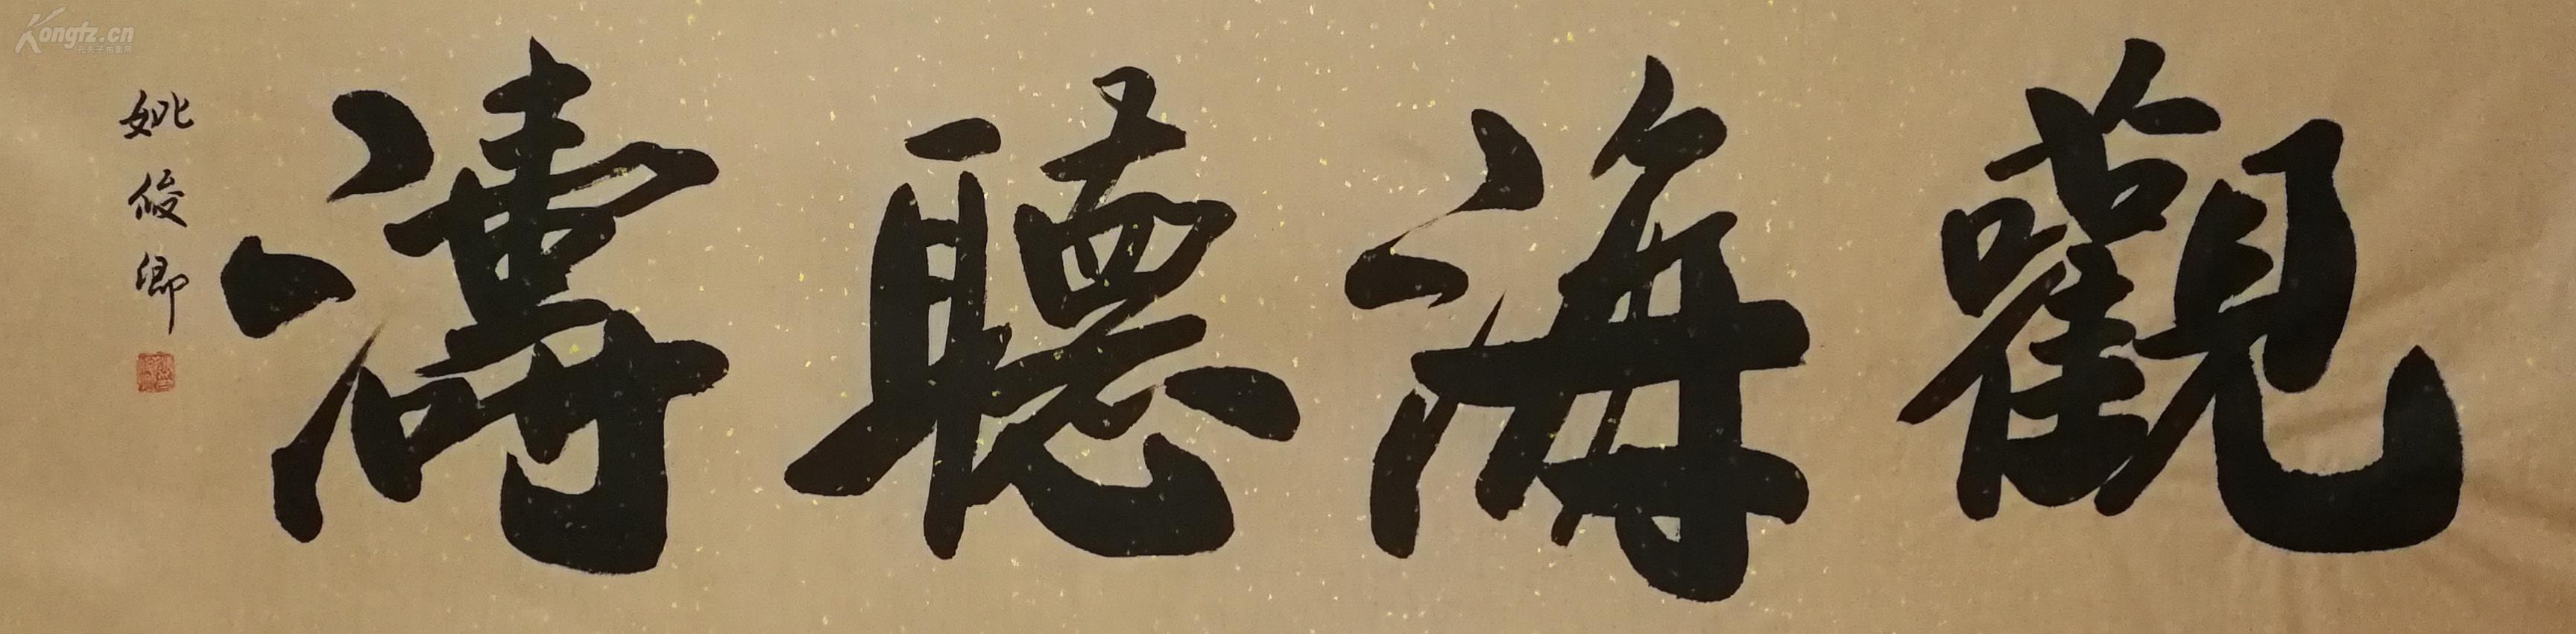 觀海聽濤
姚俊卿
Kongfz.cn
孔夫子拍卖网